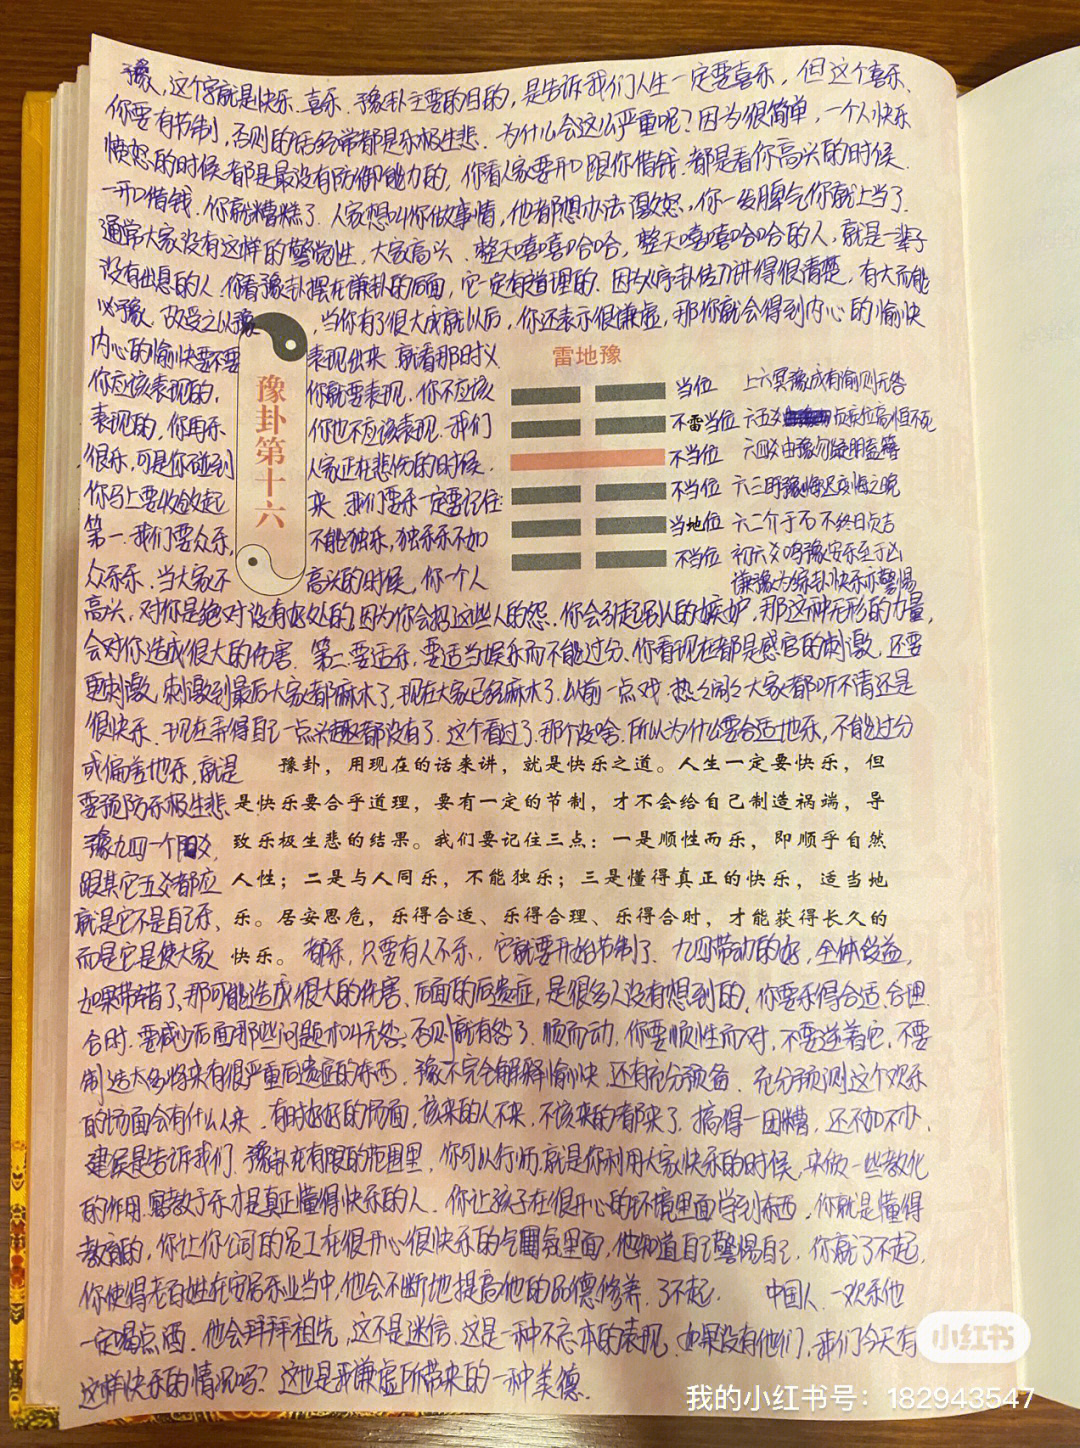 豫，这个字就是快乐、喜乐、豫卦主要的目的，是告诉我们人生一定要喜乐，但这个喜乐、
你要有节制，否则的话经常都是乐极生悲。为什么会这么严重呢？因为很简单，一个人快乐
愤怒的时候都是最没有防御能力的，你看人家要开口跟你借钱。都是看你高兴的时候
一开口借钱，你就糟糕了．人家想叫你做事情，他都想办法激怒，你一发脾气你就上当了．
通常大家没有这样的警觉性，大家高兴、整天嘻嘻哈哈，整天嘻嘻哈哈的人，就是一辈子
没有出息的人．你看豫卦摆在谦卦的后面，它一定有道理的．因为《序卦传》讲得很清楚，有大而能
必豫，故受之以豫，当你有了很大成就以后，你还表示很谦虚，那你就会得到内心的愉快
内心的愉快要不要 表现出来．就看那时义
你应该表现的， 你就要表现．你不应该
表现的，你用乐 你也不应该表现．我们
很乐，可是你碰到 人家正在悲伤的时候．
你马上要收敛起 来．我们要乐一定要记住：
第一．我们要众乐， 不能独乐，独乐乐不如
众乐乐．当大家不 高兴的时候，你一个人
豫卦第十六
雷地豫
当位 上六冥豫成有渝则无咎
不当位 六五 贞疾位高恒不死
雷
不当位 六四爻由豫勿疑朋盍簪
不当位 六三盱豫悔迟哀悔之晚
当位 六二介于石不终日贞吉
地
不当位 初六爻鸣豫安乐至于凶
谦豫为综卦快乐亦警惕
高兴，对你是绝对没有好处的，因为你会招这些人的怨．你会引起别人的嫉妒，那这种无形的力量，
会对你造成很大的伤害．第二要适乐，要适当娱乐而不能过分、你看现在都是感官的刺激，还要
更刺激，刺激到最后大家都麻木了，现在大家已经麻木了．以前一点戏．热热闹闹大家都听不清还是
很快乐．现在弄得自己一点兴趣都没有了．这个看过了，那个没啥．所以为什么要合适地乐，不能过分
或偏差地乐，就是
要预防乐极生悲
豫卦，用现在的话来讲，就是快乐之道。人生一定要快乐，但
是快乐要合乎道理，要有一定的节制，才不会给自己制造祸端，导
致乐极生悲的结果。我们要记住三点：一是顺性而乐，即顺乎自然
人性；二是与人同乐，不能独乐；三是懂得真正的快乐，适当地
乐。居安思危，乐得合适、乐得合理、乐得合时，才能获得长久的
快乐。
豫九四一个阳爻，
跟其它五爻都应
就是它不是自己乐，
而是它是使大家 都乐，只要有人不乐，它就要开始节制了．九四带动的好，全体受益，
如果带错了，那可能造成很大的伤害．后面的后遗症，是很多人没有想到的，你要乐得合适．合理
合时．要减少后面那些问题才叫无咎，否则就有咎了．顺而动，你要顺性而对，不要逆着它，不要
制造太多将来有很严重后遗症的东西．豫不完全解释愉快．还有充分预备．充分预测这个欢乐
的场面会有什么人来．有时好好的场面，该来的人不来，不该来的都来了．搞得一团糟，还不如不办，
建侯是告诉我们．豫卦在有限的范围里，你可以行师，就是你利用大家快乐的时候，来做一些教化
的作用．寓教于乐才是真正懂得快乐的人．你让孩子在很开心的环境里面学到东西，你就是懂得
教育的，你让你公司的员工在很开心很快乐的气氛里面，他知道自己警惕自己，你就了不起，
你使得老百姓在安居乐业当中，他会不断地提高他的品德修养．了不起． 中国人．一欢乐他
一定喝点酒．他会拜拜祖先，这不是迷信．这是一种不忘本的表现．如果没有他们，我们今天有
这样快乐的情况吗？这也是我谦虚所带来的一种美德．
小红书
我的小红书号：182943547